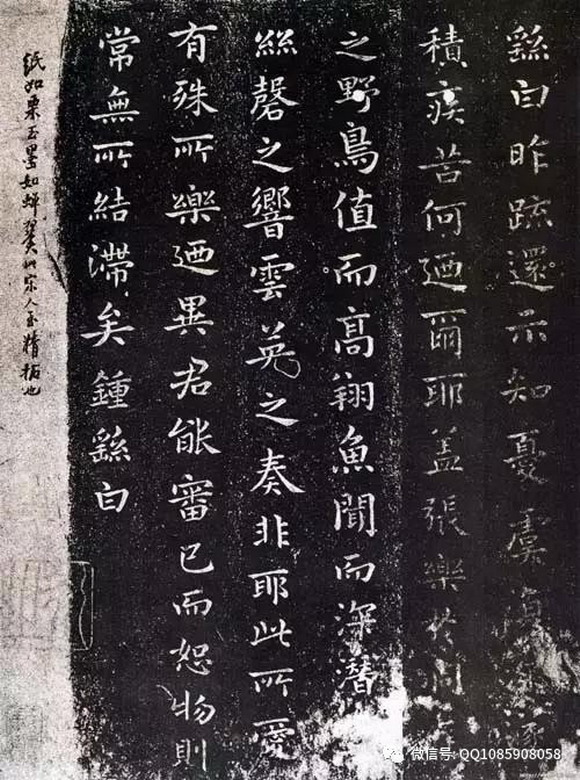 繇白昨疏還示知憂虞復深遂
積疾苦何迺爾耶蓋張樂於洞庭
之野鳥值而高翔魚聞而深潛
絲磬之響雲英之奏非耶此所愛
有殊所樂迺異君能審已而恕物則
常無所結滯矣鍾繇白
紙如栗玉墨如蟬翼此宋人至精拓也
微信号: QQ1085908058